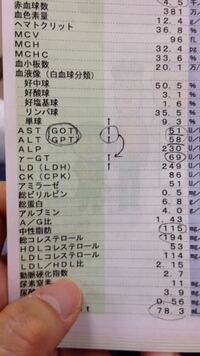 赤血球数 4.5 千
血色素量 381 万
ヘマトクリット 12.4 g
MCV 36.8 %
MCH 96 f
MCHC 32.4 pg
血小板数 33.6 %
血液像(白血球分類) 20.1 万/
好中球 50.5 %
好酸球 3.1 %
好塩基球 1.6 %
リンパ球 35.5 %
単球 9.3 %
AST (GOT) ↑ 51 U/
ALT (GPT) ↑ 58 U/
ALP 230 U/
γ-GT ↑ 69 U/
LD (LDH) ↑ 249 U/
CK (CPK) 86 U/
アミラーゼ 51 U/
総ビリルビン 0.5 m
総蛋白 6.8 g
アルブミン 4.0 g
A/G比 1.43
中性脂肪 115 mg
総コレステロール 194 mg
HDLコレステロール 53 mg
LDLコレステロール 114 mg
LDL/HDL比 2.15
動脈硬化指数 2.7
尿素窒素 11 mg
尿酸 3.9 mg
0.56 mg
78.3 mL